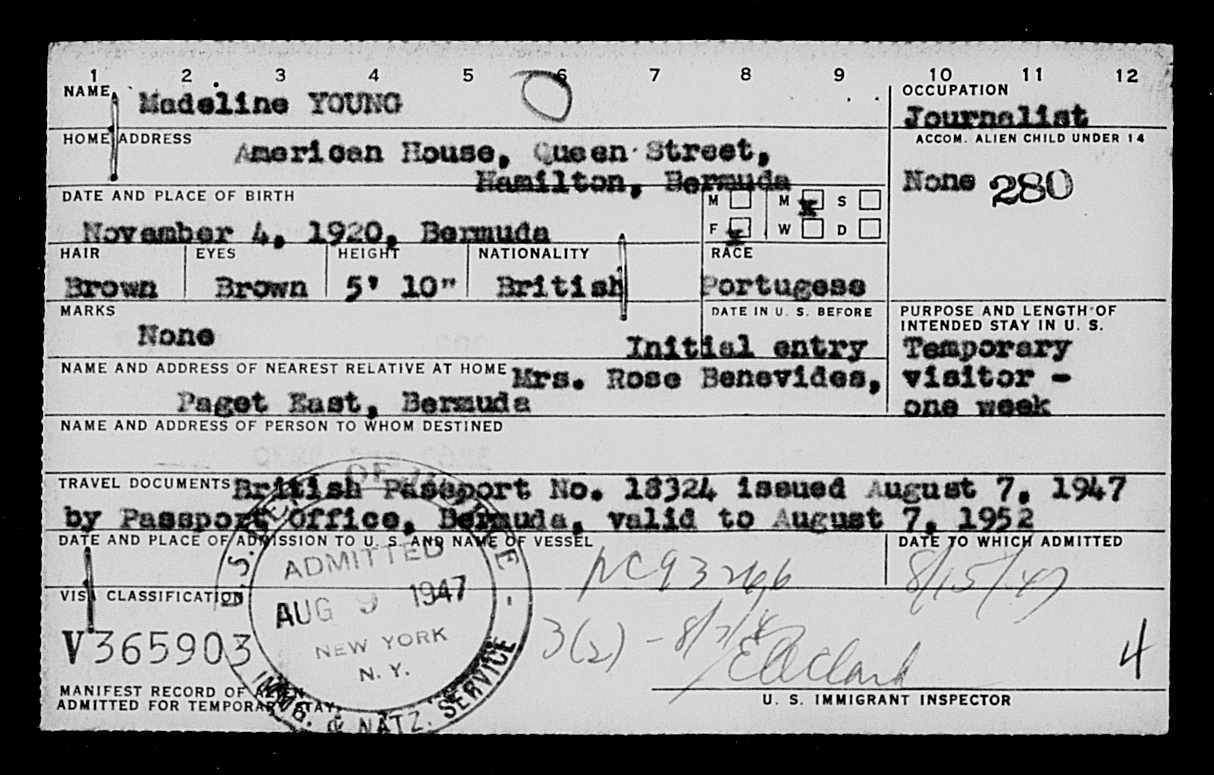 1 2 3 4 5 6 7 8 9 10 11 12
NAME Madeline YOUNG
OCCUPATION
Journalist
HOME ADDRESS American House, Queen Street,
Hamilton, Bermuda
ACCOM. ALIEN CHILD UNDER 14
None 280
DATE AND PLACE OF BIRTH
November 4, 1920, Bermuda
M M x S
F x W D
HAIR EYES HEIGHT NATIONALITY RACE
Brown Brown 5' 10" British Portugese
MARKS
None
DATE IN U. S. BEFORE
Initial entry
PURPOSE AND LENGTH OF
INTENDED STAY IN U. S.
Temporary
visitor -
one week
NAME AND ADDRESS OF NEAREST RELATIVE AT HOME Mrs. Rose Benevides,
Paget East, Bermuda
NAME AND ADDRESS OF PERSON TO WHOM DESTINED
TRAVEL DOCUMENTS British Passport No. 18324 issued August 7, 1947
by Passport Office, Bermuda, valid to August 7, 1952
DATE AND PLACE OF ADMISSION TO U. S. AND NAME OF VESSEL
NC93266
DATE TO WHICH ADMITTED
8/15/47
VISA CLASSIFICATION
3(2) - 8/7/
V365903
ADMITTED
AUG 9 1947
NEW YORK
N. Y.
IMMIG. & NATZ. SERVICE
4
MANIFEST RECORD OF ALIEN
ADMITTED FOR TEMPORARY STAY
U. S. IMMIGRANT INSPECTOR